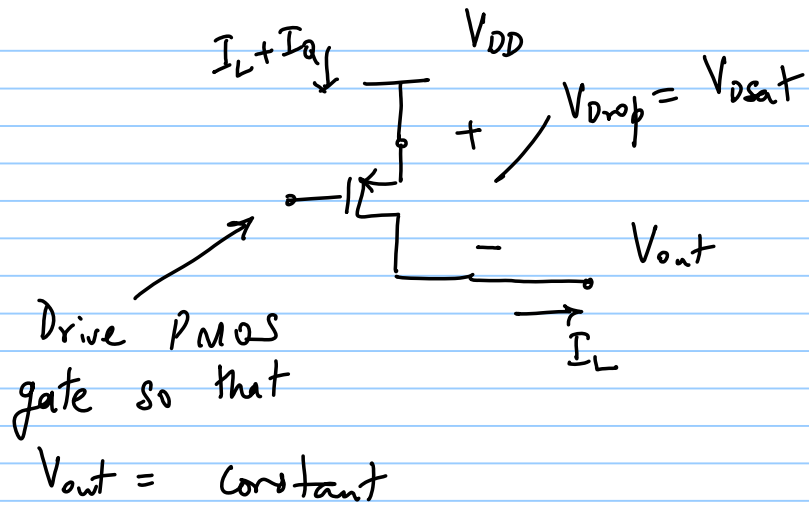 I_L + I_Q
V_DD
V_Drop = V_Dsat
+
−
V_out
I_L
Drive PMOS
gate so that
V_out = constant